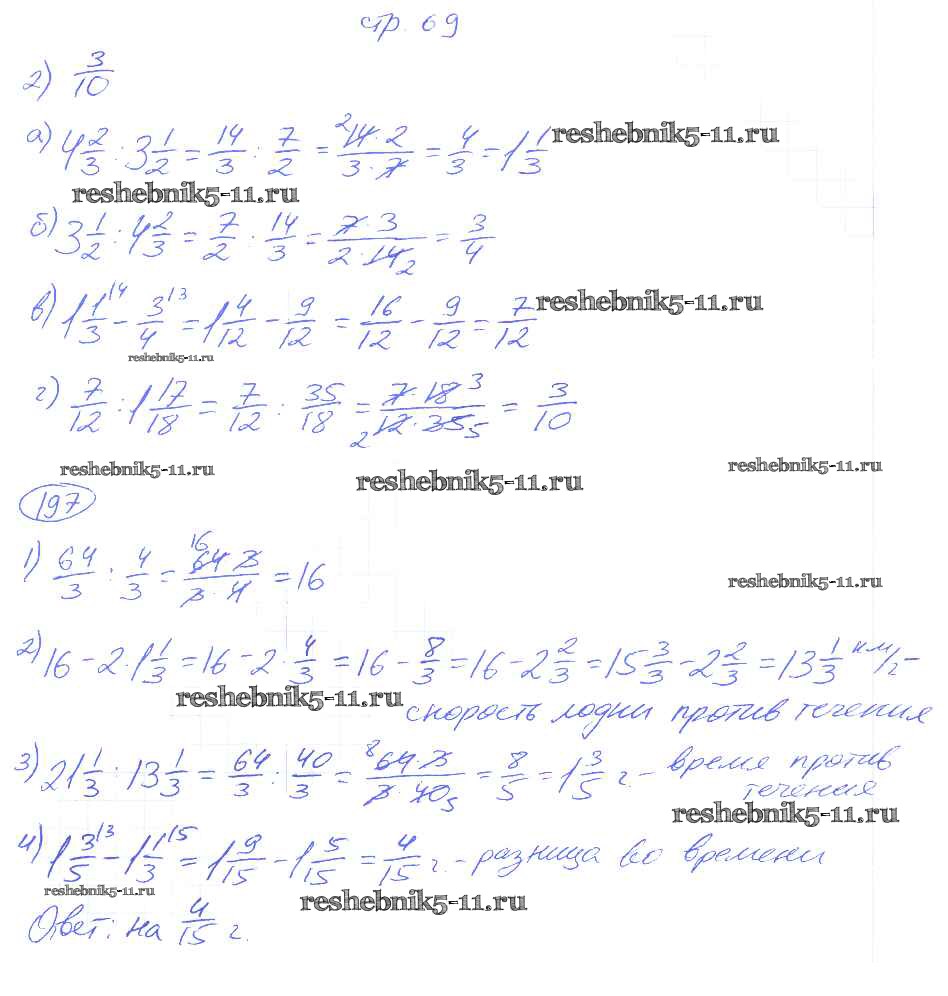 стр. 69
2) 3/10
а) 4 2/3 : 3 1/2 = 14/3 : 7/2 = 14·2/3·7 = 4/3 = 1 1/3
reshebnik5-11.ru
reshebnik5-11.ru
б) 3 1/2 : 4 2/3 = 7/2 : 14/3 = 7·3/2·14 = 3/4
в) 1 1/3 - 3/4 = 1 4/12 - 9/12 = 16/12 - 9/12 = 7/12
reshebnik5-11.ru
reshebnik5-11.ru
г) 7/12 : 1 17/18 = 7/12 : 35/18 = 7·18/12·35 = 3/10
reshebnik5-11.ru
reshebnik5-11.ru
reshebnik5-11.ru
197
1) 64/3 : 4/3 = 64·3/3·4 = 16
reshebnik5-11.ru
2) 16 - 2·1 1/3 = 16 - 2·4/3 = 16 - 8/3 = 16 - 2 2/3 = 15 3/3 - 2 2/3 = 13 1/3 км/г -
reshebnik5-11.ru
скорость лодки против течения
3) 21 1/3 : 13 1/3 = 64/3 : 40/3 = 64·3/3·40 = 8/5 = 1 3/5 г. - время против
течения
reshebnik5-11.ru
4) 1 3/5 - 1 1/3 = 1 9/15 - 1 5/15 = 4/15 г. - разница во времени
reshebnik5-11.ru
reshebnik5-11.ru
Ответ: на 4/15 г.